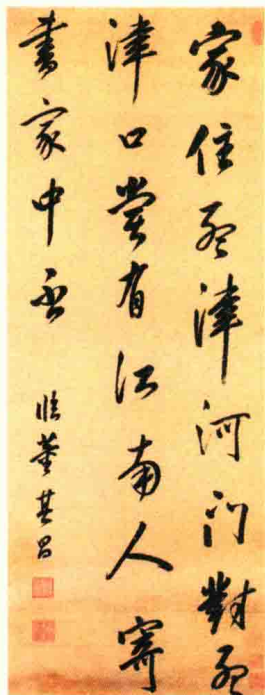 家住孟津河门對孟
津口嘗有江南人寄
書家中否
臨董其昌